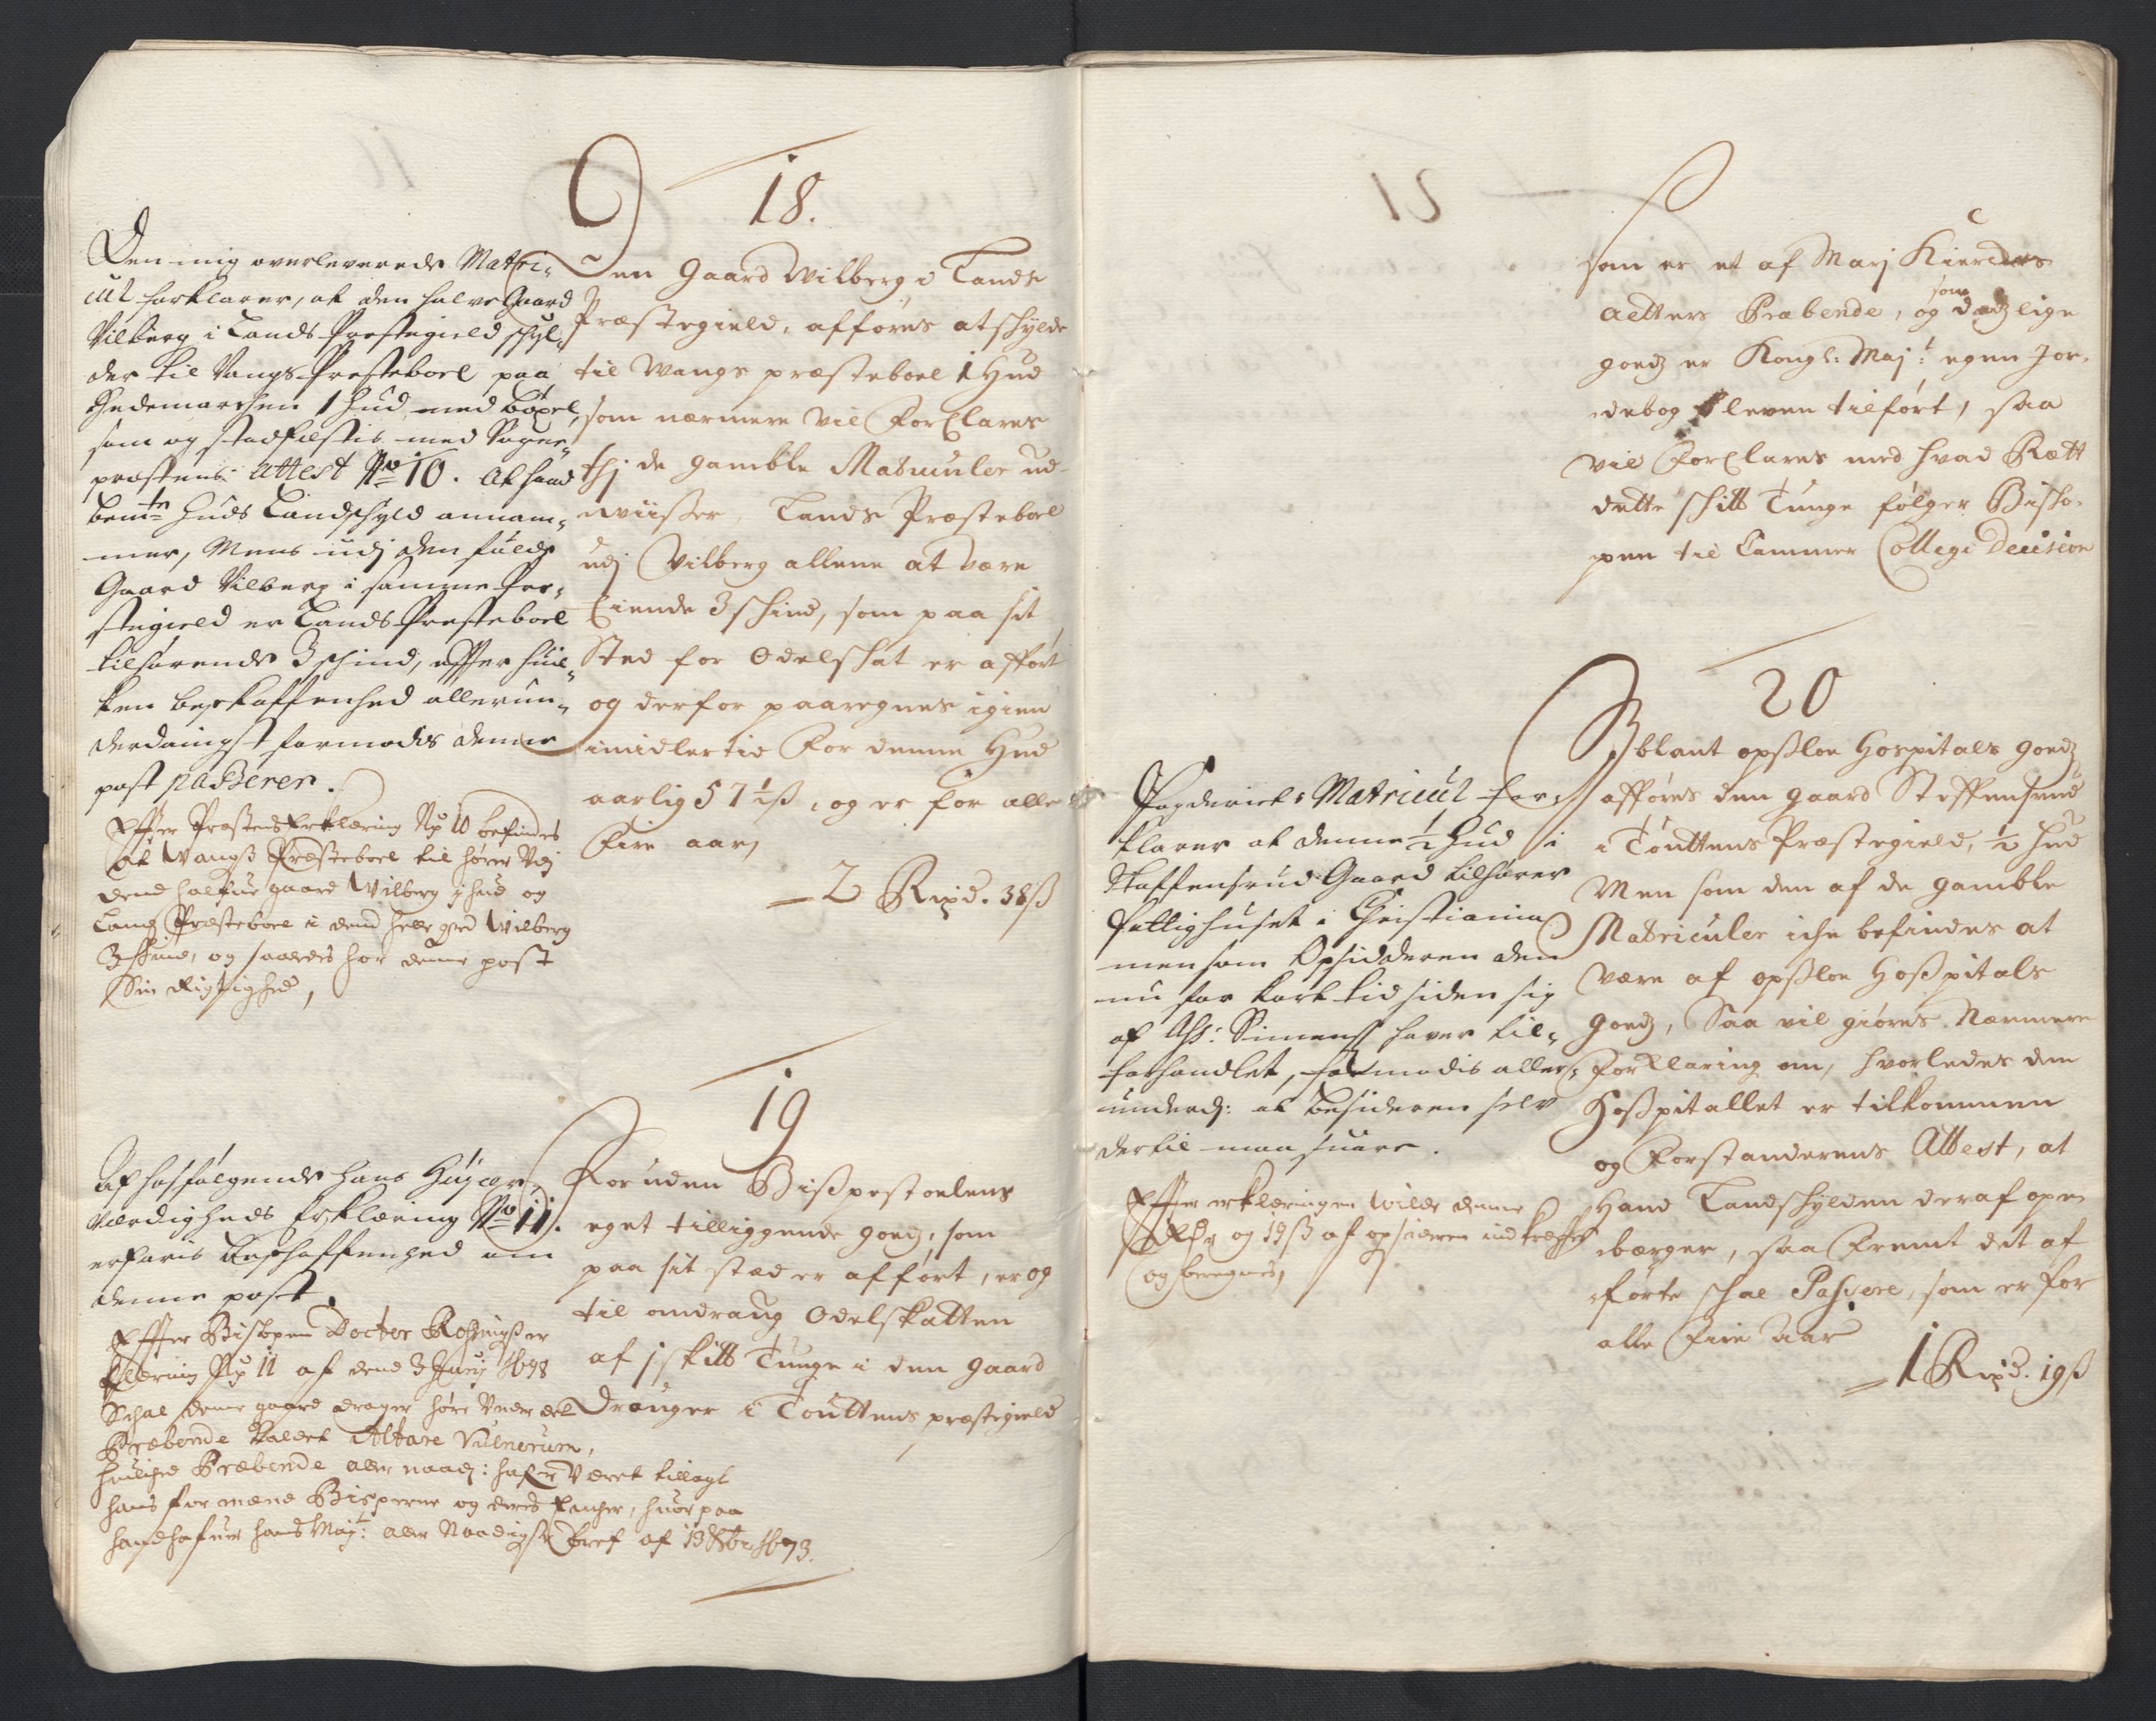 18.
Den mig overleverede Matri-
cul forklarer, at den halve Gaard
Vilberg i Lands Prestegield schyl-
der til Vangs Presteboel paa
Hedemarchen 1 hud med bøxel,
som og stadfæstis med Sogne-
præstens Attest No 10. At hand
bemte huds Landschyld annam-
mer, Mens udj den fulde
Gaard Vilberg i samme Pre-
stegield er Lands Presteboel
tilhørende 3 schind, effter huil-
ken beskaffenhed allerun-
derdanigst formodes denne
post passerer.
Effter Præstens Erklæring No 10 befindes
at Vangs Præsteboel til hører udj
dend halfue gaard Wilberg 1 hud og
Lands Præsteboel i dend hele grd Wilberg
3 skind, og saaledes har denne post
Sin Rigtighed,
Den Gaard Wilberg i Lands
Præstegield, afføres at schylde
til Wangs præsteboel 1 Hud
som nærmere vil ForClares
thj de gamble Matriculer ud-
wiisser, Lands Præsteboel
udj Vilberg allene at være
Eiende 3 schind, som paa sit
Sted for Odelschat er afført
og derfor paaregnes igien
imidlertid For denne Hud
aarlig 57 1/2 ß, og er for alle
Fire aar,
2 Rixd. 38 ß
19
Af hosfølgende hans Høyær-
værdigheds Erklæring No 11.
erfaris beschaffenhed om
denne post.
Effter Bishopen Doctor Rosings er
klæring No 11 af dend 3 Junij 1698
Schal denne gaard Drager høre under det
Præbende kaldet Altare Vulnerum,
huilched Præbende aller naad: hafr været tillagt
hans formænd Bisperne og deres Encher, huorpaa
hand hafuer hans Majt: aller Naadigste bref af 13 8br 1673.
Foruden Bispestoelens
eget tilliggende goedz, som
paa sit stæd er afført, er og
til omdraug Odelskatten
af 1 skitt Tunge i den gaard
Drauger i Touttens præstegield
som er et af Marj Kierckes
aelters Præbende, og som dedzlige
goedz er Kongl: Majt: egen Jor-
debog bleven tilført, saa
vil ForClares med hvad Rætt
dette schitt Tunge følger Bischo-
pen til Cammer Collegi Decision
20
Fogderiets Matricul for-
klarer at denne 1/2 hud i
Staffensrud Gaard tilhører
fattighuset i Christiania
men som Opsidderen den
nu for kort tid siden sig
af Ass: Simens haver til-
forhandlet, formodis aller-
underd: at besidderen selv
der til maa suare.
Effter erklæringen wilde denne
1 Rdr og 19 ß af opsideren indkræfves
og beregnes,
Iblant opsloe Hospitals goedz,
afføres den gaard Steffensrud
i Touttens Præstegield, 1/2 hud
Men som den af de gamble
Matriculer iche befindes at
være af opsloe Hospitals
goedz, Saa vil giøres Nærmere
Forklaring om, hvorledes den
Hospitallet er tilkommen
og Forstanderens Attest, at
Hand Landschylden deraf ope-
bærger, saa fremt det af
førte schal Passere, som er for
alle Fire Aar
1 Rixd. 19 ß